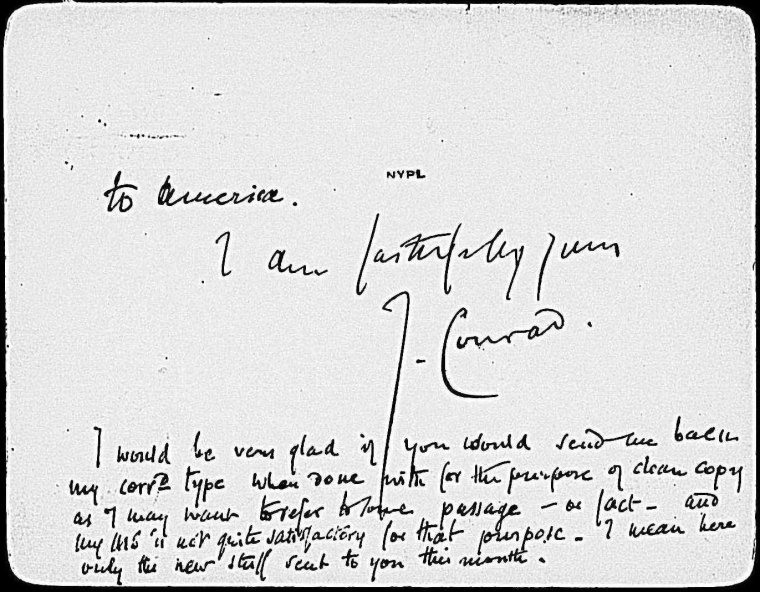 NYPL
to America.
I am faithfully yours
J. Conrad.
I would be very glad if you would send me back
my corrd type when done with for the purpose of clean copy
as I may want to refer to some passage – or fact – and
my MS is not quite satisfactory for that purpose – I mean here
only the new stuff sent to you this month.